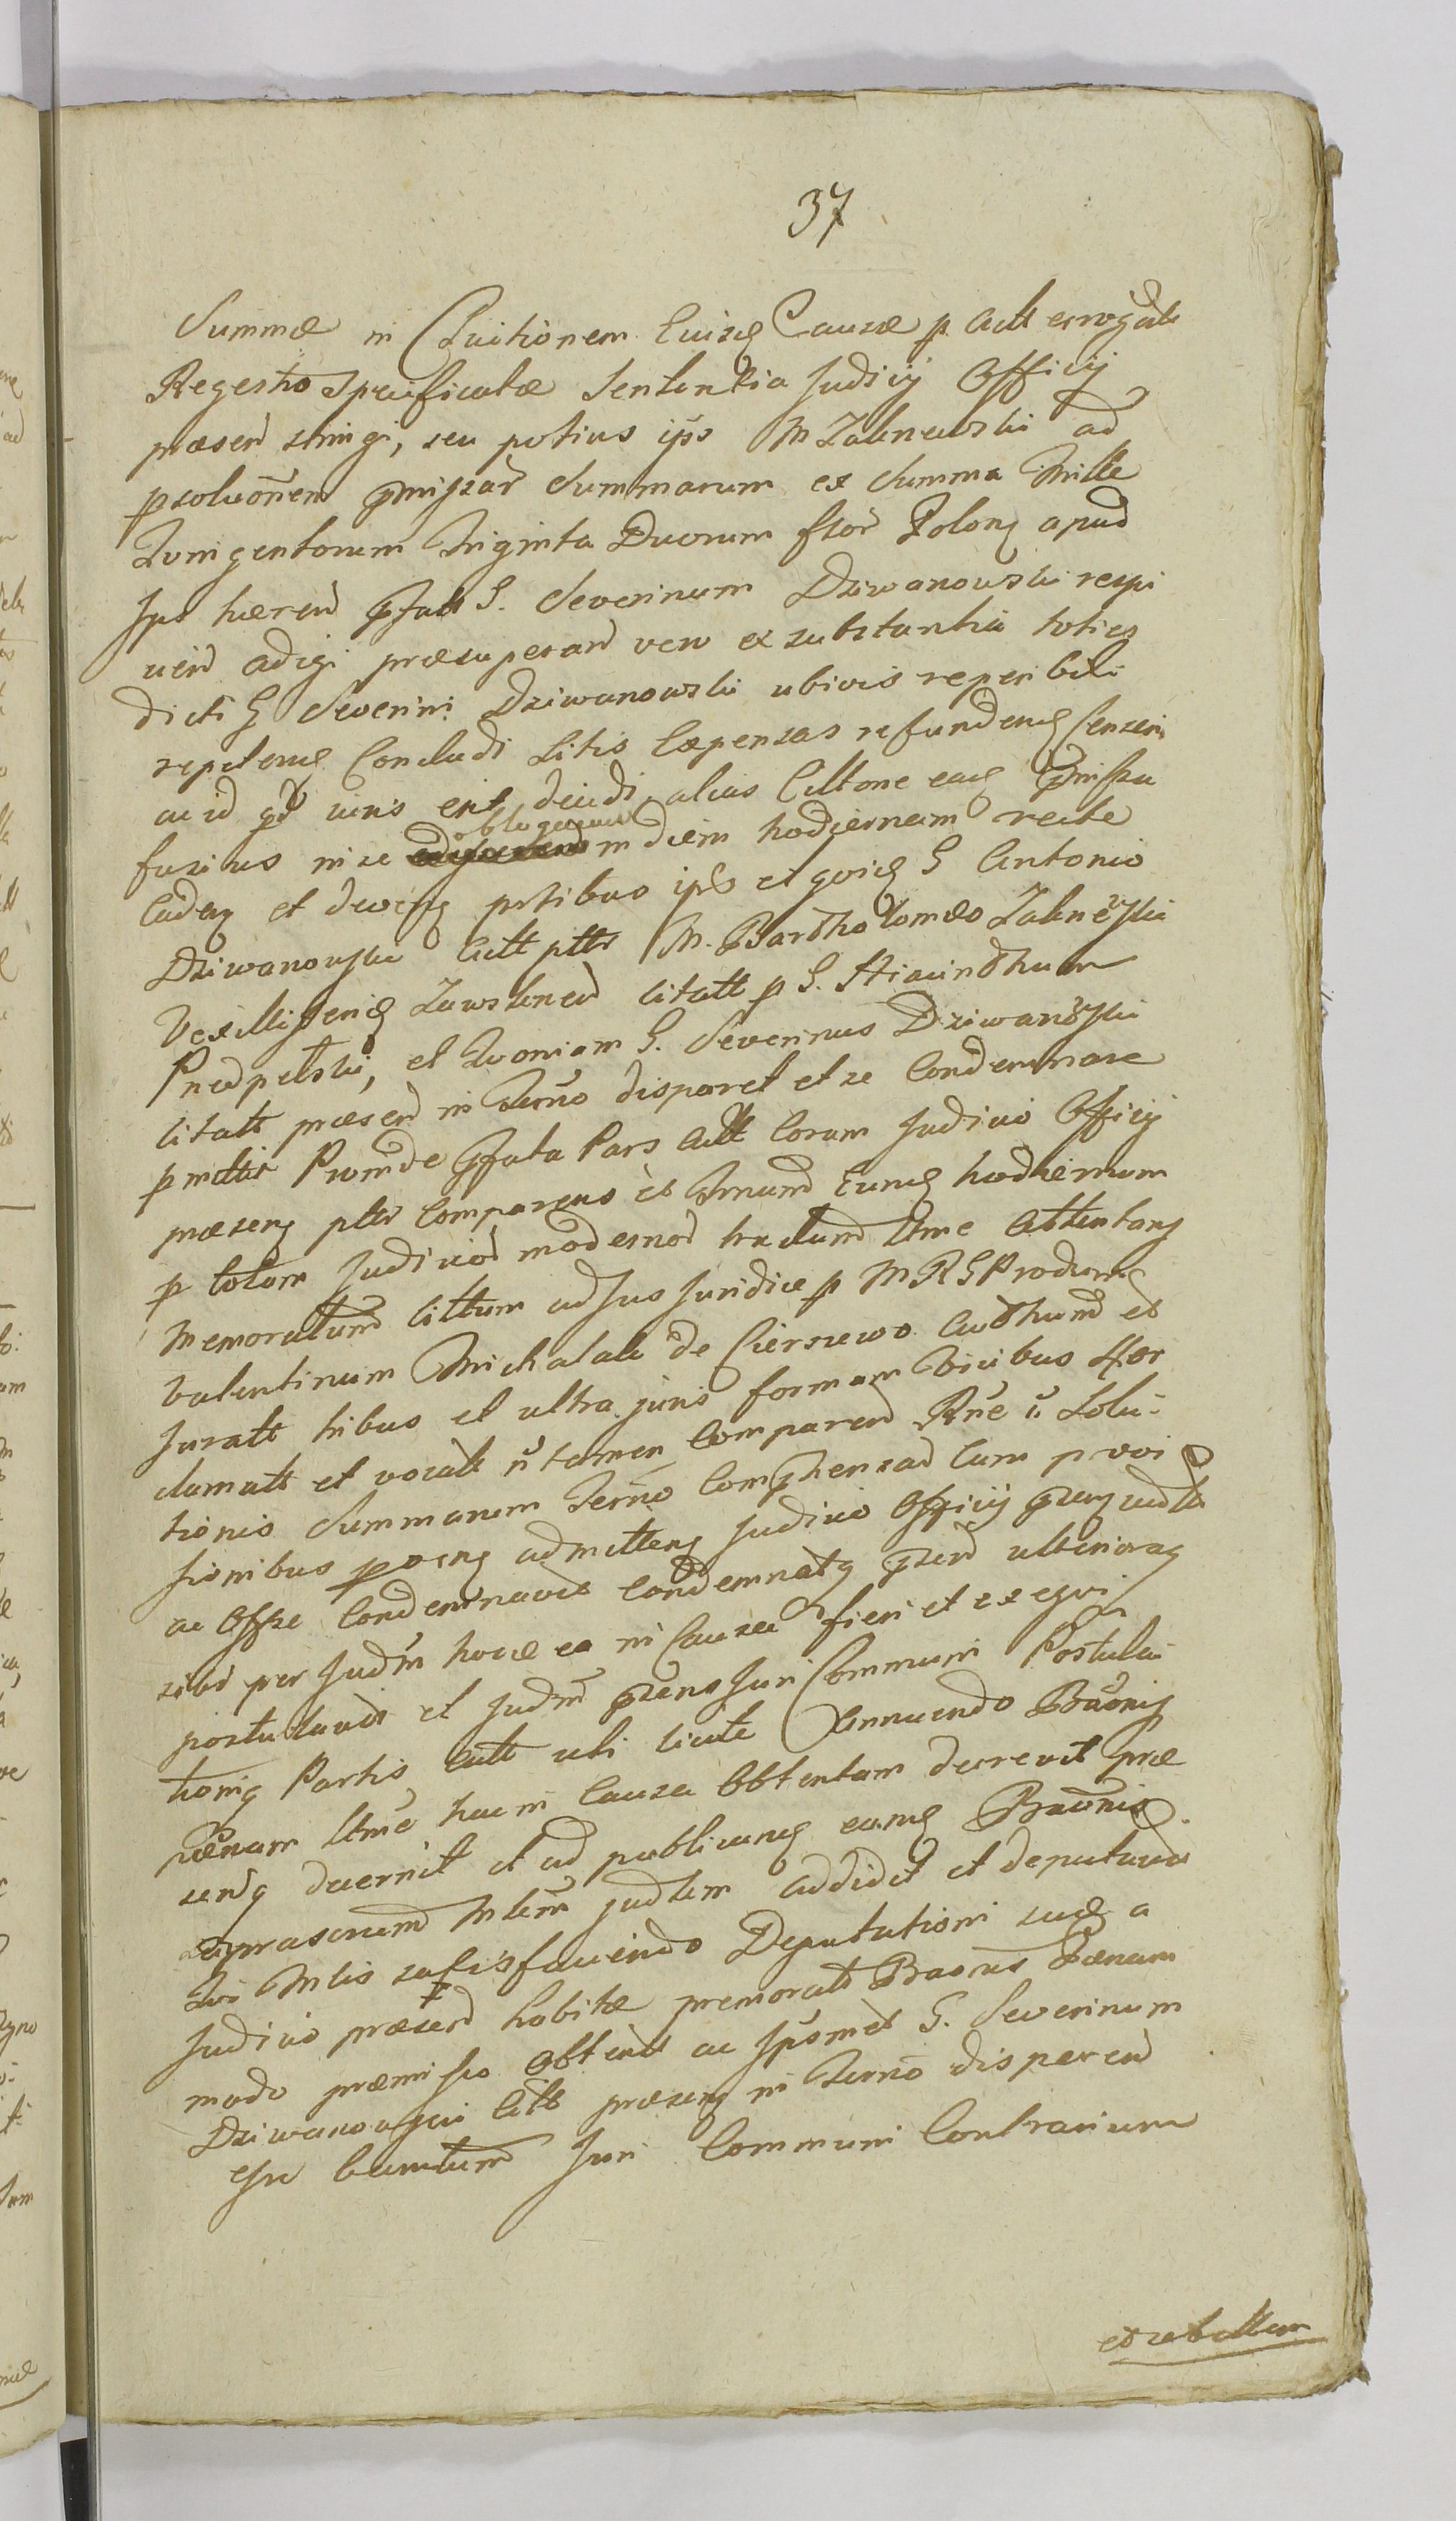 37
Summæ in Evitionem Cuisq Causæ p. Actt erogatæ
Regestro specificatæ Sententia Judicij Officij
præsend stringi, seu potius ips M Zalenewski ad
psolutionem pmissar Summarum ex Summa Mille
Quingentorum Triginta Duorum flor Polon apud
Ips hærend pfatt G. Severinum Dziwanowski respi
ciend adigi præsuperand vero ex substantia toties
dicti G Severini Dziwanowski ubivis reperibili
repetend Concludi Litis Expensas refundend Censeri
ac id qd iuris erit decidi alias Cittone eaq pmissa
fusius in se oblogueren in diem hodiernam recte
Caden et deven ptibus ips et quidq G Antonio
Dziwanowski Actt pttr M. Bartholomæo Zalewski
Vexilligerid Zawskrnend Citatt p G. Hiacinthum
Przedpelski, et Quoniam G. Severinus Dziwanowski
Citatt præsend in Termo disparet et se Condemnare
pmittit Proinde pfata Pars Actt Coram Judicio Officij
præsens pttr Comparens et Trmum Eumq hodiernum
p totam Judiciod modernod tractum ltme Attentans
Memoratum Cittum ad Jus Juridice p MRG Prodrom
Valentinum Michalak de Cierszewo Authum et
Juratt tribus et ultra juris formam vicibus
clamatt et vocatt n tamen Comparend Rne Solu-
tionis Summarum Termo Comphensad Cum p
sionibus admitten Judicio Officij
ac Offse Condemnavit Condemnatq pzend ulterioraq
sibi per Judm hocce ea in Causa fieri et exequi
postulavit et Judm pzens Juri Communi Postula-
tioniq Partis Actt uti licite Annuendo Baonis
Pænam ltme hac in Causa Obtentam decrevit præ
sendq decernit et ad publicand eamq Baonis
Mlem judlem addidit et deputavit
Qui Mlis satisfaciendo Deputationi suæ a
Judicio præsend habitæ premoratt Baonis Pænam
modo præmisso Obtent ac Ipsomet G. Severinum
Dziwanowski Citt præsens in Termo disparend
esse banitum Juri Communi Contrarium
et rebellem